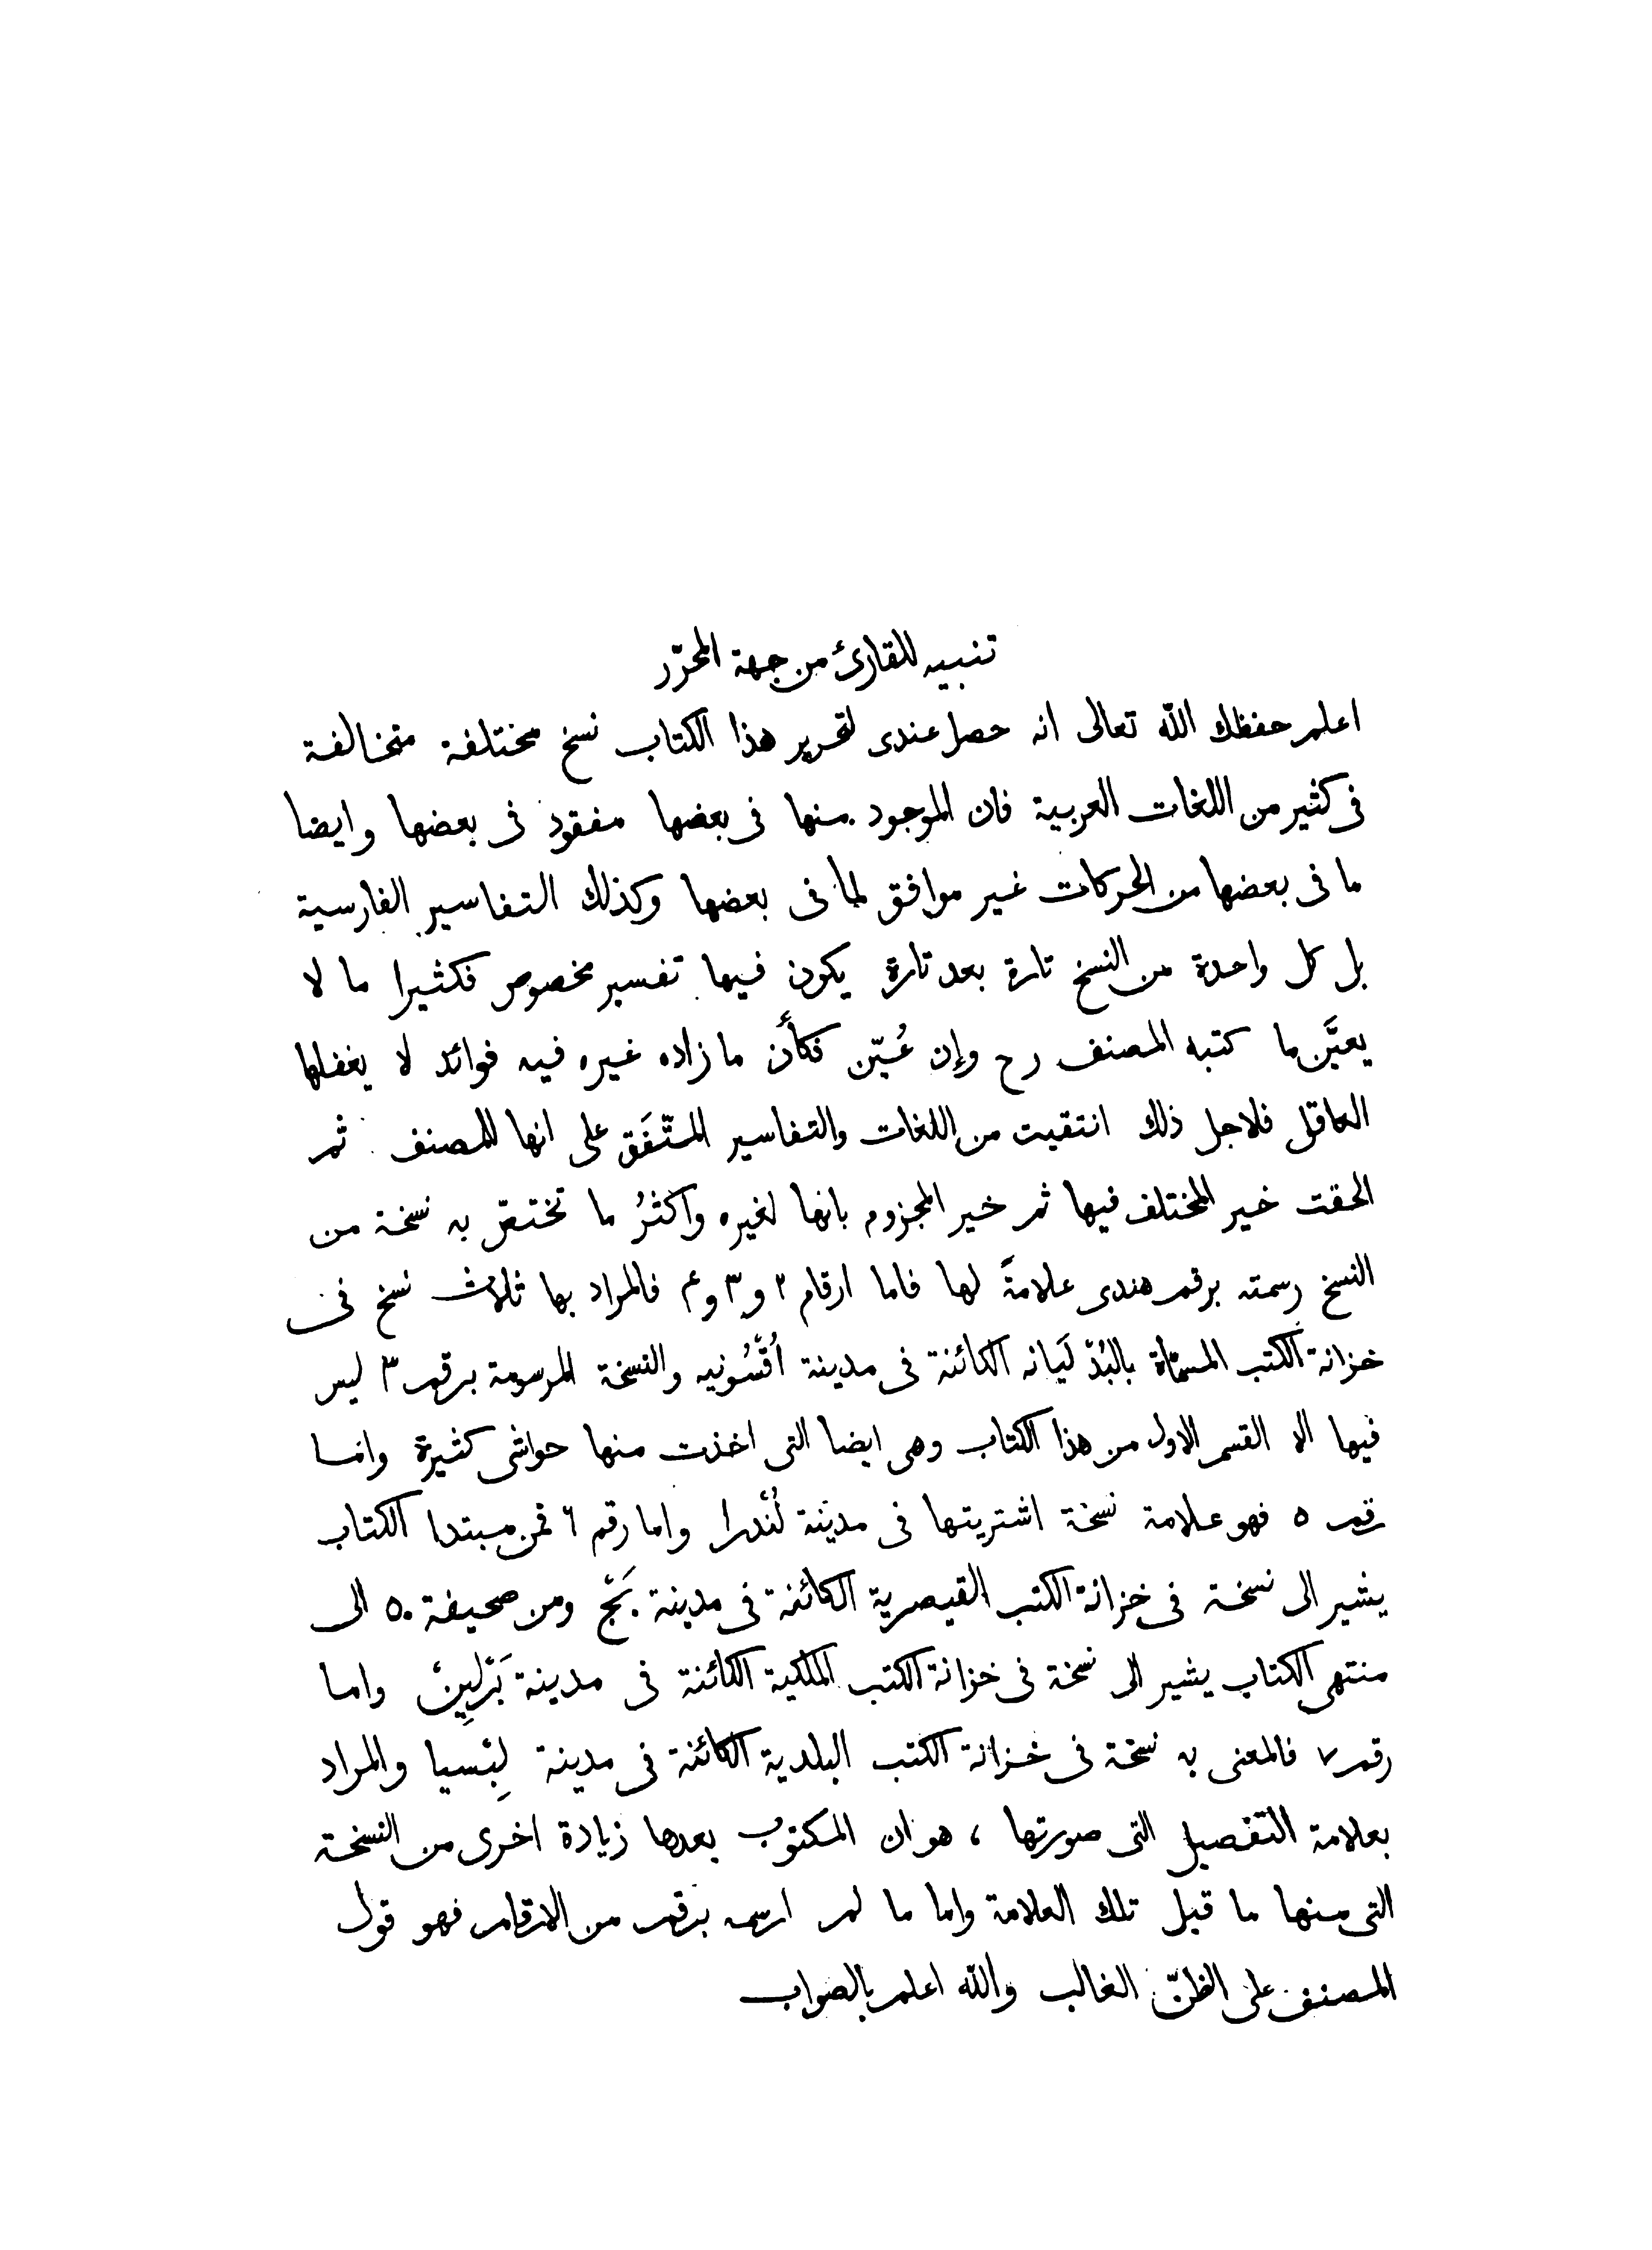 تنبيه للقارئ من جهة المحرّر
اعلم حفظك الله تعالى انه حصل عندى لتحرير هذا الكتاب نسخ مختلفة متخالفة
فى كثير من اللغات العربية فان الموجود منها فى بعضها مفقود فى بعضها وايضا
ما فى بعضها من الحركات غير موافق لما فى بعضها وكذلك التفاسير الفارسية
بل كل واحدة من النسخ تارة بعد تارة يكون فيها تفسير مخصوص فكثيرا ما لا
يعيَّن ما كتبه المصنف رح وإن عُيّن فكأن ما زاده غيره فيه فوائد لا يغفلها
العاقل فلاجل ذلك انتقيت من اللغات والتفاسير المتّفَق على انها للمصنف ثم
الحقت خير المختلف فيها ثم خير المجزوم بانها لغيره واكثرُ ما تختصّ به نسخة من
النسخ رسمته برقم هندى علامةً لها فاما ارقام ٢ و٣ و٤ فالمراد بها ثلاث نسخ فى
خزانة الكتب المسمّاة بالبُدّ لَيانه الكائنة فى مدينة اُقْسُونيه والنسخة المرسومة برقم ٣ ليس
فيها الا القسم الاول من هذا الكتاب وهى ايضا التى اخذت منها حواشى كثيرة واما
رقم ٥ فهو علامة نسخة اشتريتها فى مدينة لُنْدرا واما رقم ٦ فمن مبتدا الكتاب
يشير الى نسخة فى خزانة الكتب القيصرية الكائنة فى مدينة بَجْ ومن صحيفة ٥٠ الى
منتهى الكتاب يشير الى نسخة فى خزانة الكتب الملكية الكائنة فى مدينة بَرْلِينْ واما
رقم ٧ فالمعنى به نسخة فى خزانة الكتب البلدية الكائنة فى مدينة لِبْسيا والمراد
بعلامة التفصيل التى صورتها ، هو ان المكتوب بعدها زيادة اخرى من النسخة
التى منها ما قبل تلك العلامة واما ما لم ارسمه برقم من الارقام فهو قول
المصنف على الظنّ الغالب والله اعلم بالصواب